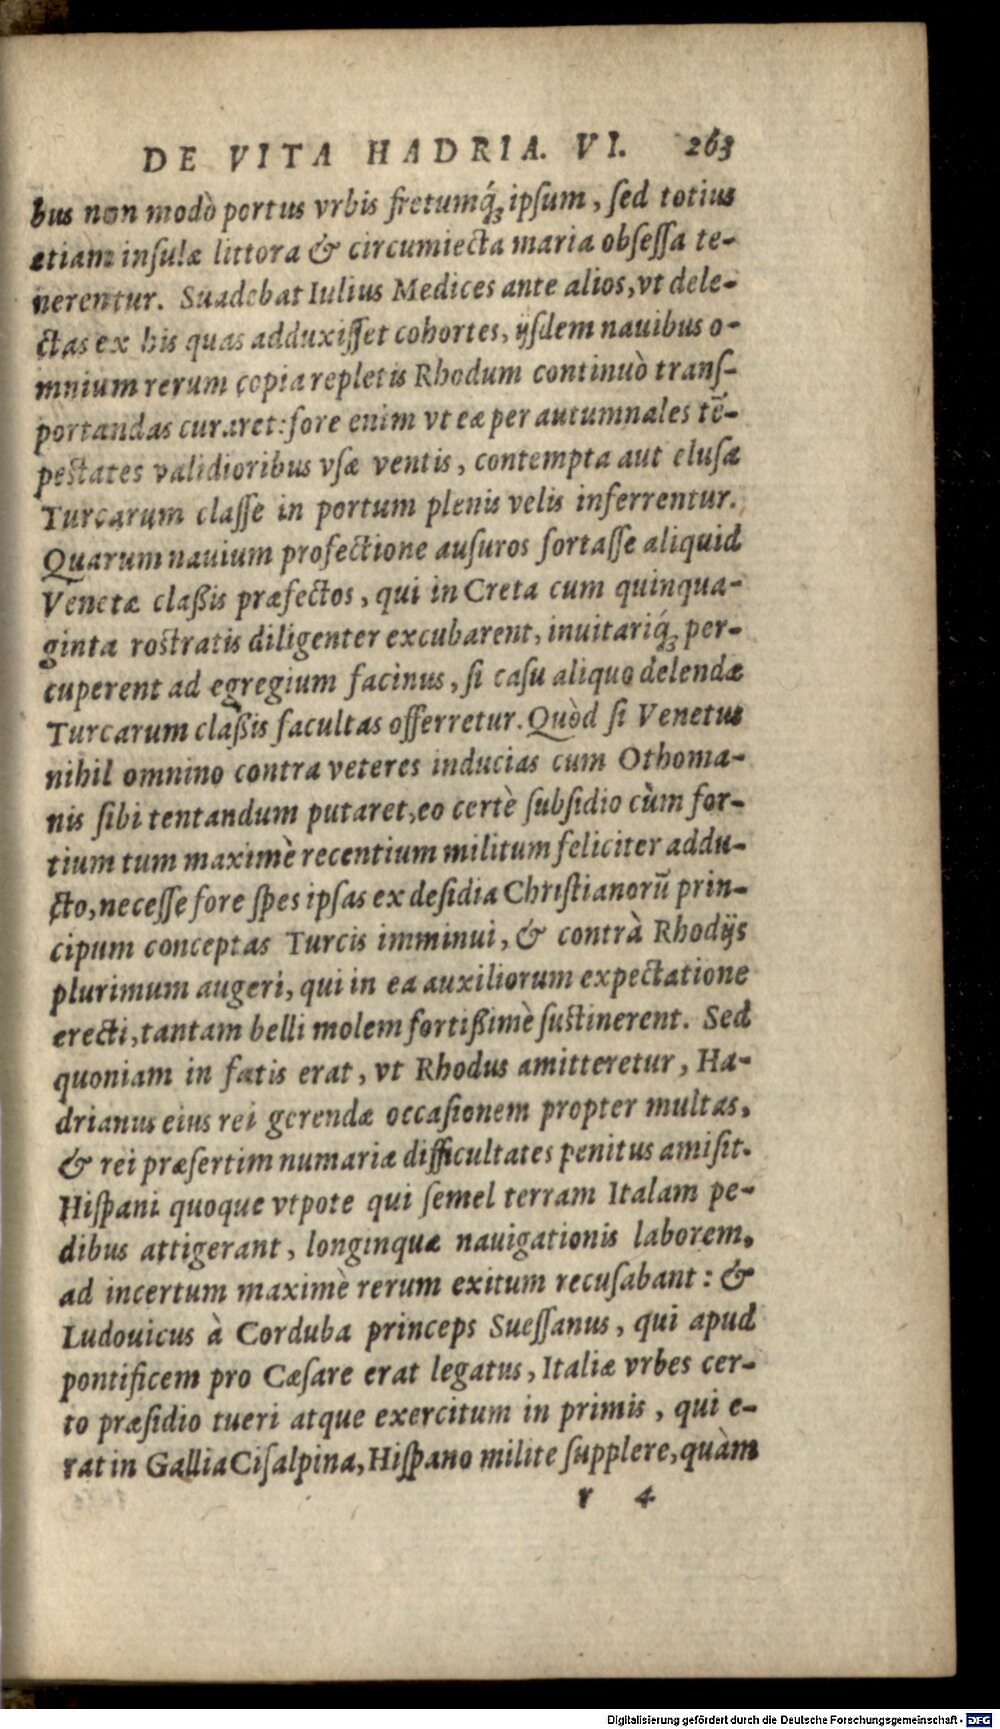 DE VITA HADRIA. VI. 263
bus non modò portus vrbis fretumq́; ipſum, ſed totius
etiam inſulæ littora & circumiecta maria obſeſſa te-
nerentur. Suadebat Iulius Medices ante alios, vt dele-
ctas ex his quas adduxiſſet cohortes, ijſdem nauibus o-
mnium rerum copia repletis Rhodum continuò tranſ-
portandas curaret: fore enim vt eæ per autumnales tē-
peſtates validioribus vſæ ventis, contempta aut eluſa
Turcarum claſſe in portum plenis velis inferrentur.
Quarum nauium profectione auſuros fortaſſe aliquid
Venetæ claßis præfectos, qui in Creta cum quinqua-
ginta roſtratis diligenter excubarent, inuitariq́; per-
cuperent ad egregium facinus, ſi caſu aliquo delendæ
Turcarum claßis facultas offerretur. Quòd ſi Venetus
nihil omnino contra veteres inducias cum Othoma-
nis ſibi tentandum putaret, eo certè ſubſidio cùm for-
tium tum maximè recentium militum feliciter addu-
cto, neceſſe fore ſpes ipſas ex deſidia Chriſtianorū prin-
cipum conceptas Turcis imminui, & contrà Rhodijs
plurimum augeri, qui in ea auxiliorum expectatione
erecti, tantam belli molem fortißimè ſuſtinerent. Sed
quoniam in fatis erat, vt Rhodus amitteretur, Ha-
drianus eius rei gerendæ occaſionem propter multas,
& rei præſertim numariæ difficultates penitus amiſit.
Hiſpani quoque vtpote qui ſemel terram Italam pe-
dibus attigerant, longinquæ nauigationis laborem,
ad incertum maximè rerum exitum recuſabant: &
Ludouicus à Corduba princeps Sueſſanus, qui apud
pontificem pro Cæſare erat legatus, Italiæ vrbes cer-
to præſidio tueri atque exercitum in primis, qui e-
rat in Gallia Ciſalpina, Hiſpano milite ſupplere, quàm
r 4
Digitalisierung gefördert durch die Deutsche Forschungsgemeinschaft - DFG